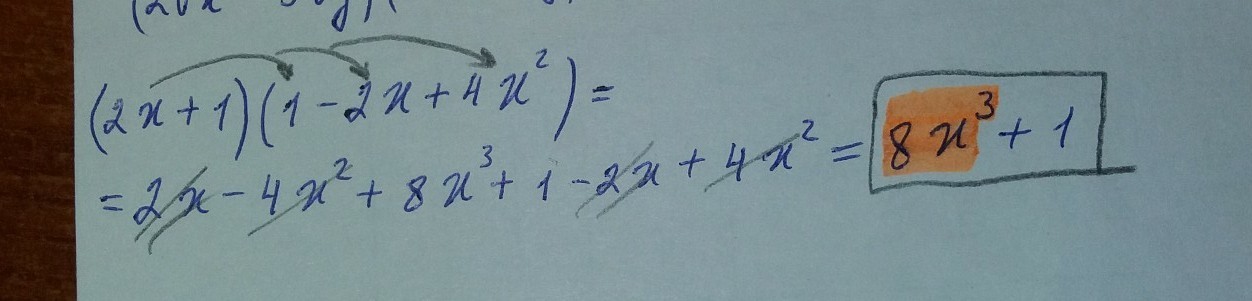 (2x+1)(1-2x+4x²)=
=2x-4x²+8x³+1-2x+4x²=8x³+1